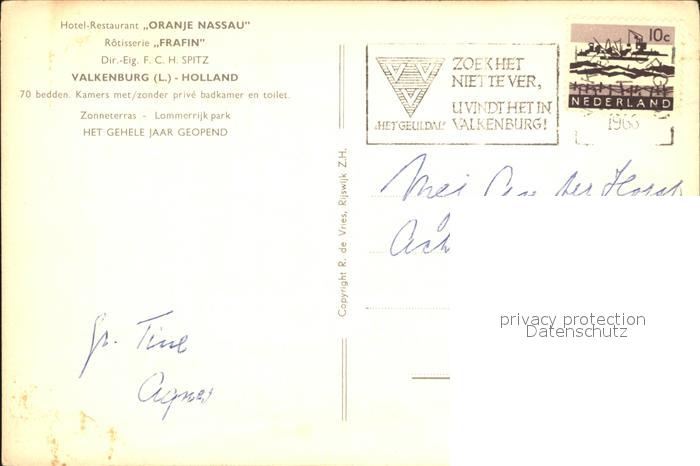 Hotel-Restaurant „ORANJE NASSAU"
Rôtisserie „FRAFIN"
Dir.-Eig. F. C. H. SPITZ
VALKENBURG (L.) - HOLLAND
70 bedden. Kamers met/zonder privé badkamer en toilet.
Zonneterras - Lommerrijk park
HET GEHELE JAAR GEOPEND
Copyright R. de Vries, Rijswijk Z.H.
ZOEK HET
NIET TE VER,
U VINDT HET IN
„HET GEULDAL" VALKENBURG!
10c
NEDERLAND
1966
der Horst
Ach
privacy protection
Datenschutz
gr. Tine
Agnes